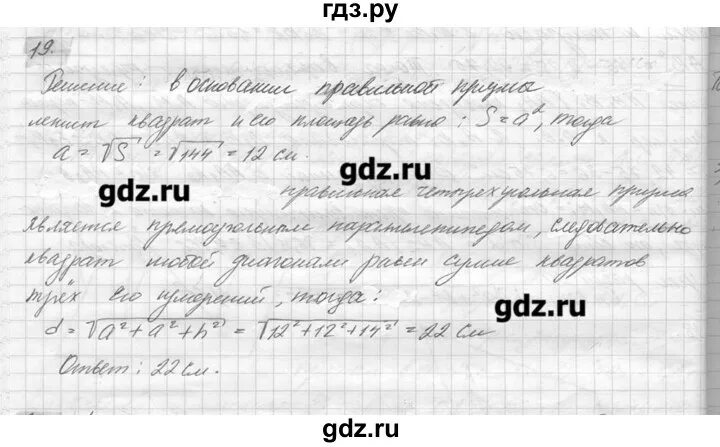 гдз.ру
19.
Решение: в основании правильной призмы
лежит квадрат и его площадь равна: S = a², тогда
a = √S = √144 = 12 см.
gdz.ru
gdz.ru
правильная четырехугольная призма
является прямоугольным параллелепипедом, следовательно
квадрат любой диагонали равен сумме квадратов
трёх его измерений, тогда:
gdz.ru
d = √a² + a² + h² = √12² + 12² + 14² = 22 см
Ответ: 22 см.
gdz.ru